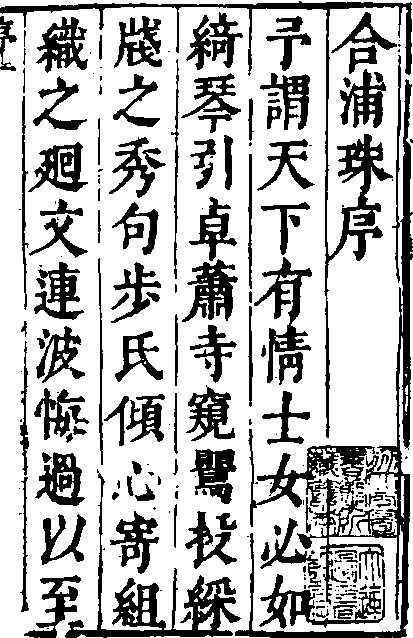 合浦珠序
予謂天下有情士女必如
綺琴引卓蕭寺窺鶯投綵
牋之秀句步氏傾心寄組
織之廻文連波悔過以至
序